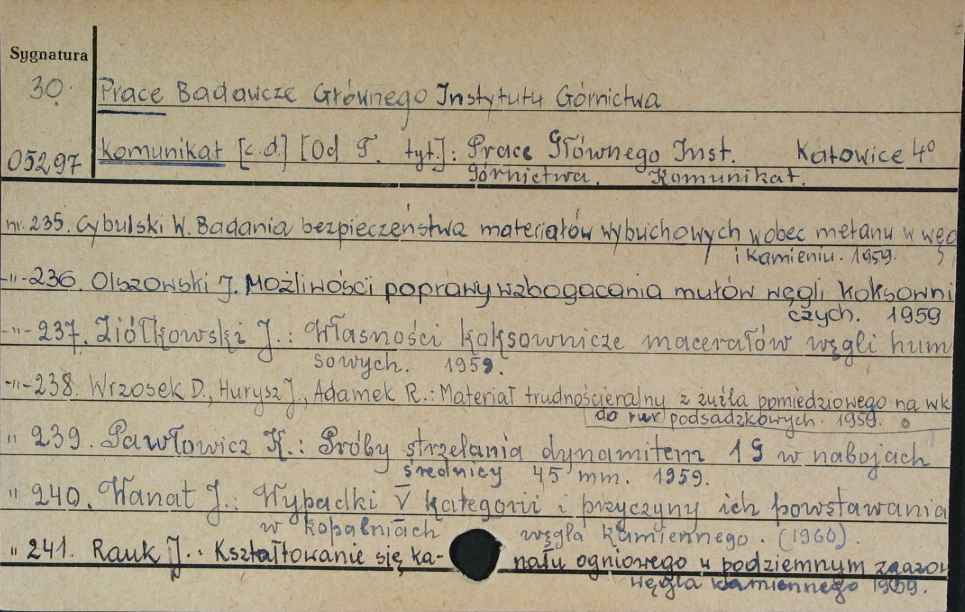 Sygnatura
30. Prace Badawcze Głównego Instytutu Górnictwa
05297 Komunikat [c.d.] [Od T. tyt.]: Prace Głównego Inst. Katowice 4°
Górnictwa. Komunikat.
nr. 235. Cybulski W. Badania bezpieczeństwa materiałów wybuchowych wobec metanu w węg
i kamieniu. 1959.
-"-236. Olszowski J. Możliwości poprawy wzbogacania mułów węgli koksowni
czych. 1959
-"-237. Ziółkowski J.: Własności koksownicze macerałów węgli hum
sowych. 1959.
-"-238. Wrzosek D., Hurysz J., Adamek R.: Materiał trudnościeralny z żużla pomiedziowego na wk
do rur podsadzkowych. 1959.
" 239. Pawłowicz K.: Próby strzelania dynamitem 19 w nabojach
średnicy 45 mm. 1959.
" 240. Wanat J.: Wypadki V kategorii i przyczyny ich powstawania
w kopalniach węgla kamiennego. (1960).
" 241. Rauk J.: Kształtowanie się ka- nału ogniowego w podziemnym zgazow
węgla kamiennego 1959.